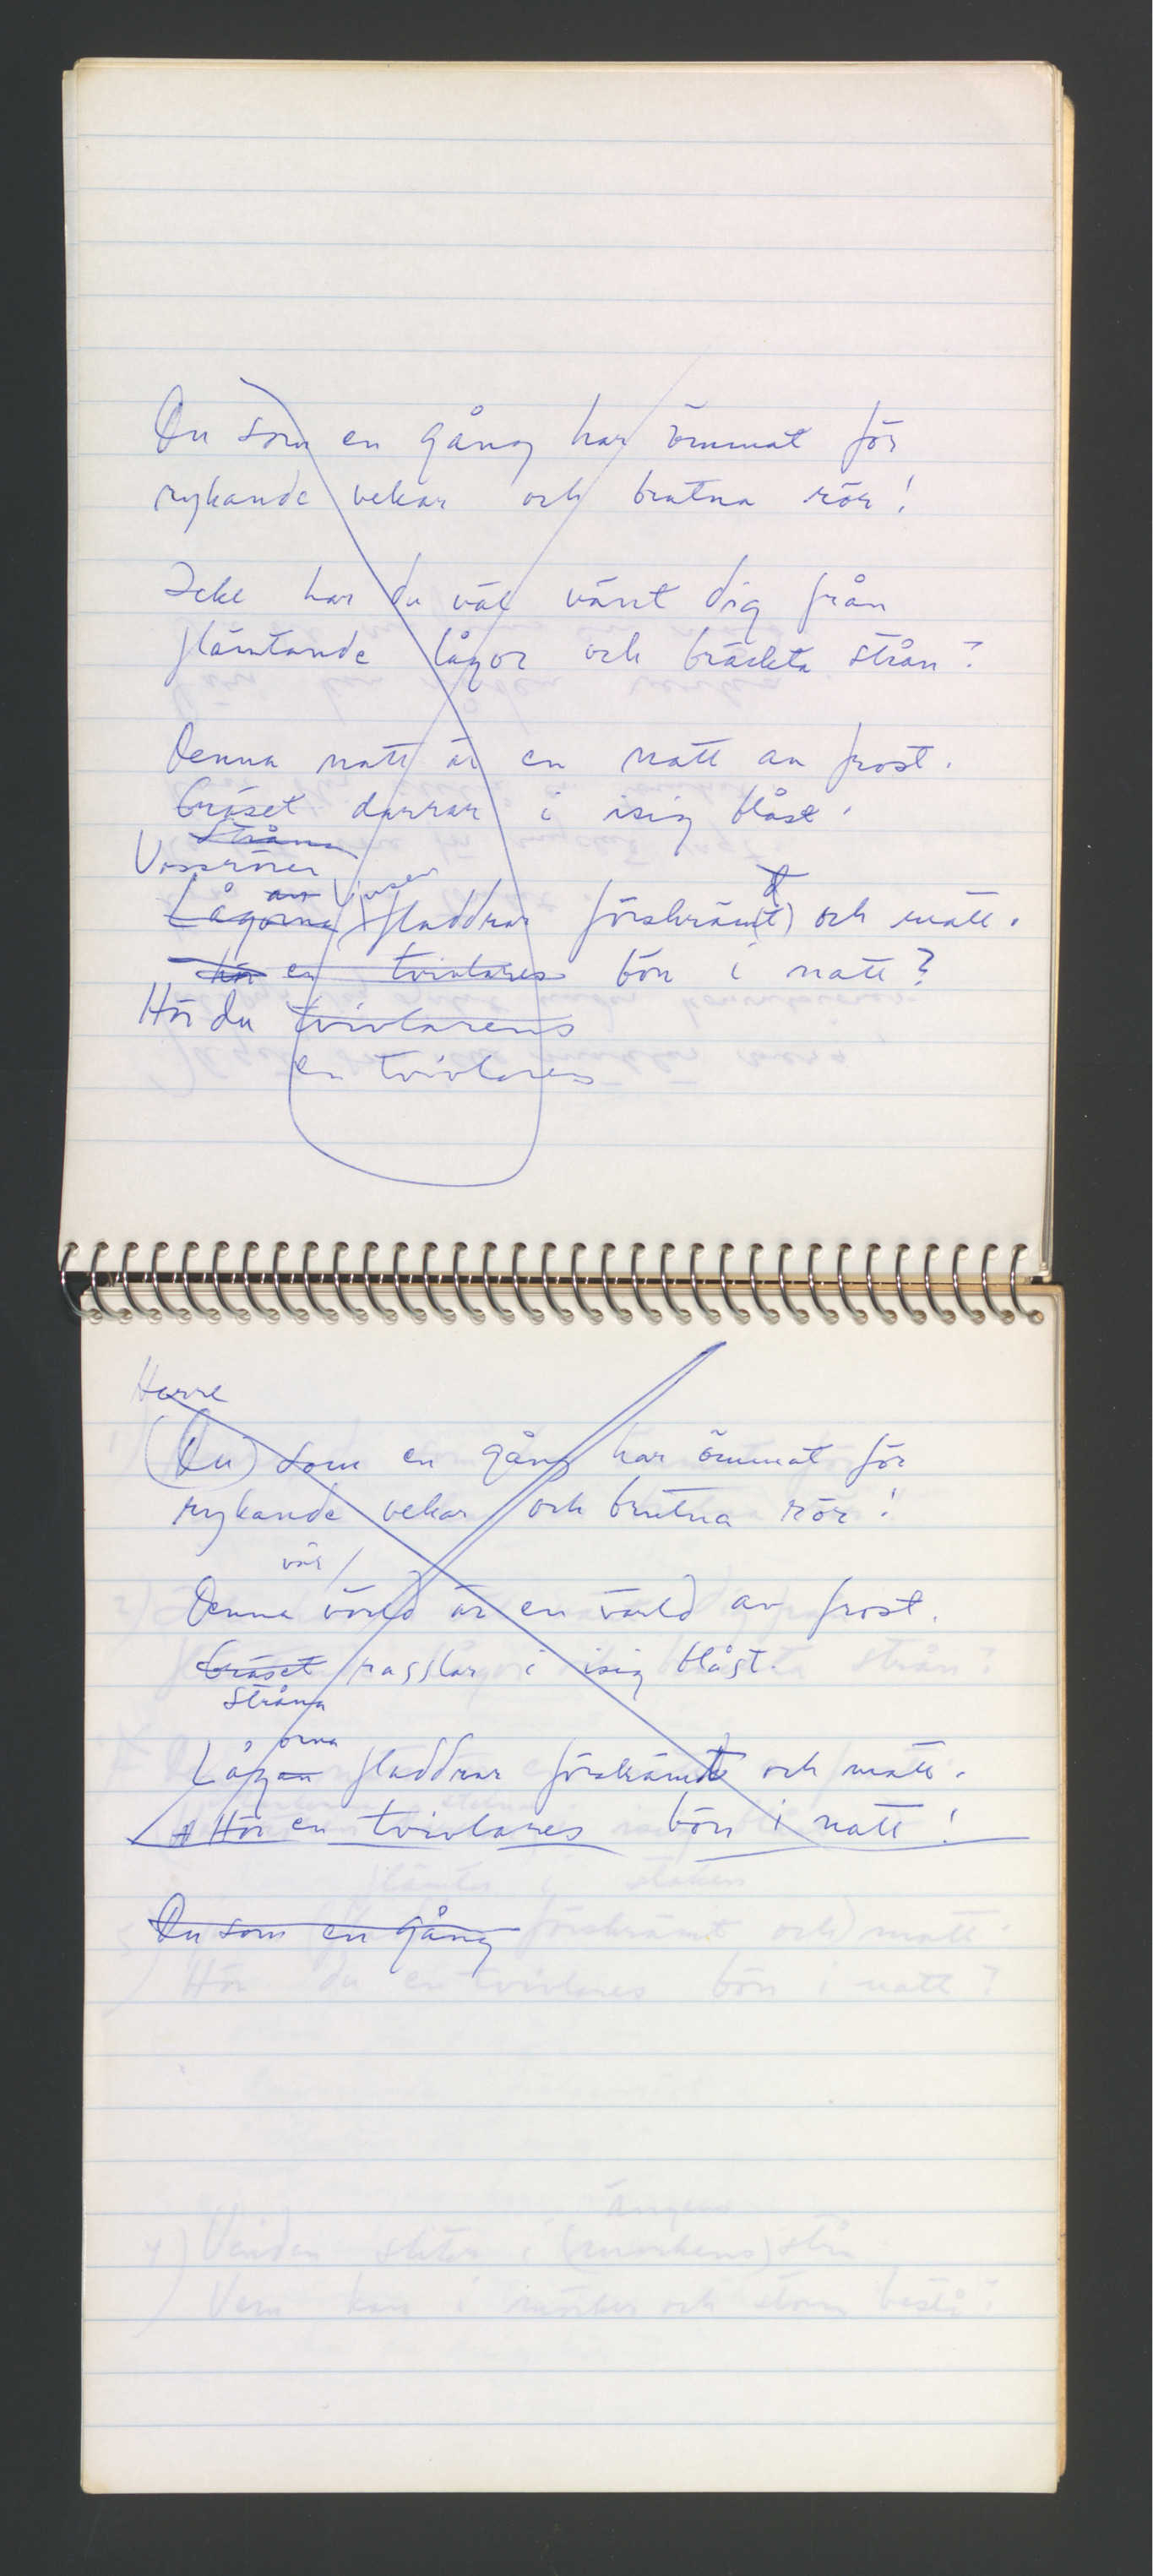 Du som en gång har ömmat för
rykande vekar och brutna rör!
Icke har du väl vänt dig från
flämtande lågor och bräckta strån?
Denna natt är en natt av frost.
Gräset darrar i isig blåst.
Stråna
Vassrören
an Ljusen
Lågorna fladdrar förskrämt och matt.
Hör en tvivlares bön i natt?
Hör du tvivlarens
en tvivlares
Herre
(Du) som en gång har ömmat för
rykande vekar och brutna rör!
vår
Denna värld är en värld av frost.
Gräset rasslar i isig blåst.
Stråna
orna
Lågan fladdrar förskrämt och matt.
Hör en tvivlares bön i natt!
Du som en gång
förskrämt och matt
Hör du en tvivlares bön i natt?